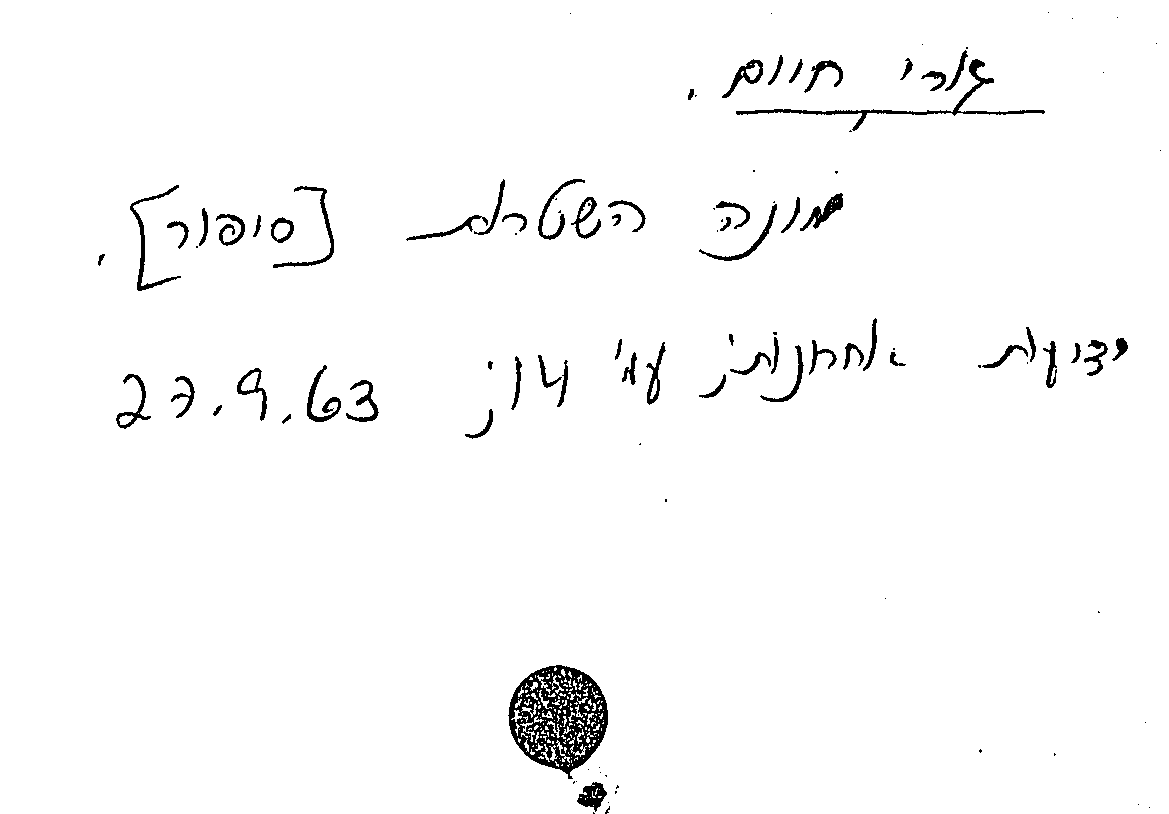 גורי חיים.
מונה השטרות [סיפור].
ידיעות אחרונות; עמ' 27.9.63